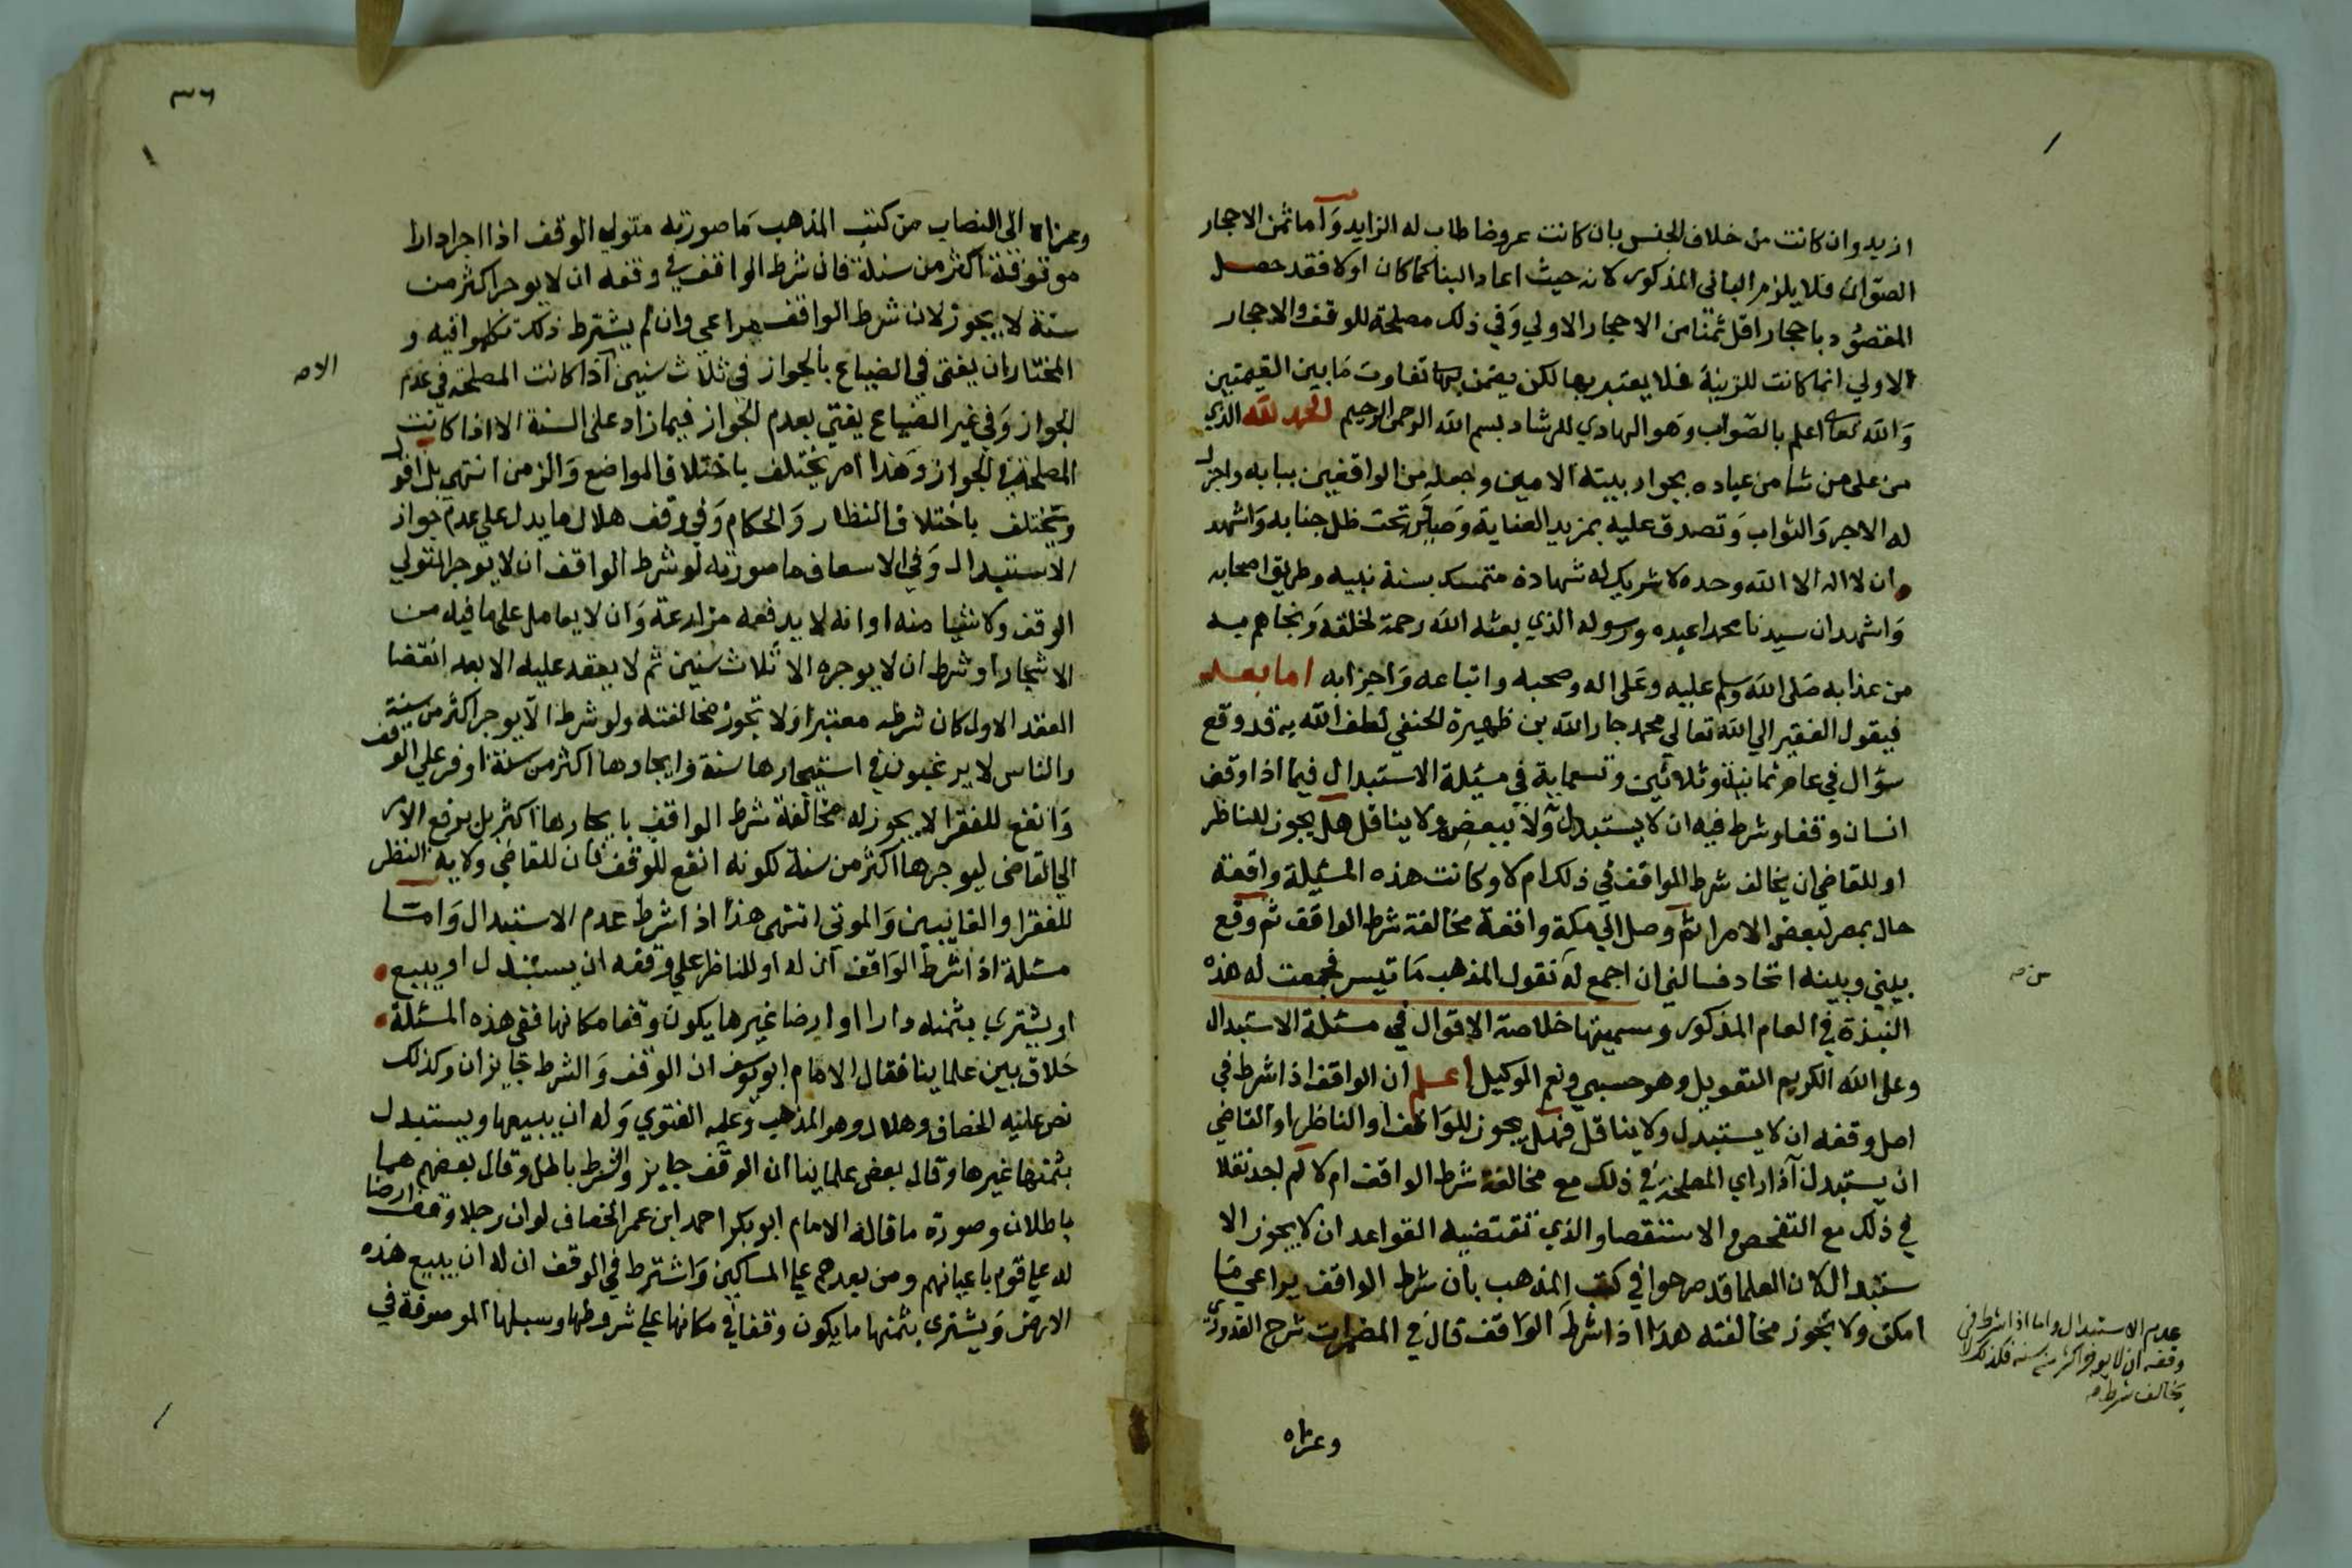 ازيد وان كانت من خلاف الجنس بان كانت عروضا طاب له الزايد وآما ثمن الاحجار
الصوان فلا يلزم البانى المذكور لانه حيث اعاد البنا كما كان اولا فقد حصل
المقصود باحجار اقل ثمنا من الاحجار الاولي وفي ذلك مصلحة للوقف والاحجار
الاولي انما كانت للزينة فلا يعتد بها لكن يضمن تفاوت ما بين القيمتين
والله تعالى اعلم بالصواب وهو الهادي للرشاد بسم الله الرحمن الرحيم الحمد لله الذي
من على من شا من عباده بجوار بيته الامين وجعله من الواقفين ببابه واجزل
له الاجر والثواب وتصدق عليه بمزيد العناية تحت ظل جنابه واشهد
ان لا اله الا الله وحده لا شريك له شهادة متمسك بسنة نبيه وطريق اصحابه
واشهد ان سيدنا محمدا عبده ورسوله الذي بعثه الله رحمة لخلقه ونجاهم به
من عذابه صلى الله وسلم عليه وعلى اله وصحبه واتباعه واحزابه اما بعد
فيقول الفقير الي الله تعالى محمد جار الله بن ظهيرة الحنفي لطف الله به قد وقع
سؤال في عام ثمانية وثلاثين وتسعماية في مسئلة الاستبدال فيما اذا وقف
انسان وقفا وشرط فيه ان لا يستبدل ولا يبيعض ولا يناقل هل يجوز للناظر
او للقاضي ان يخالف شرط الواقف في ذلك ام لا وكانت هذه المسئلة واقعة
حال بمصر لبعض الامرا ثم وصل الي مكة واقعة مخالفة شرط الواقف ثم وقع
بيني وبينه اتحاد فسالني ان اجمع له نقول المذهب ما تيسر فجمعت له هذه
النبذة في العام المذكور وسميتها خلاصة الاقوال في مسئلة الاستبدال
وعلى الله الكريم التعويل وهو حسبي ونعم الوكيل اعلم ان الواقف اذا شرط في
اصل وقفه ان لا يستبدل ولا يناقل فهل يجوز للواقف او الناظر او القاضي
ان يستبدل اذا راي المصلحة في ذلك مع مخالفة شرط الواقف ام لا لم اجد نقلا
في ذلك مع التفحص والاستقصا والذي تقتضيه القواعد ان لا يجوز الا
ستبدال لان العلما قد صرحوا في كتب المذهب بان شرط الواقف يراعي ما
امكن ولا تجوز مخالفته هذا اذا شرط الواقف قال في المضمرات شرح القدوري
من صه
عدم الاستبدال واما اذا شرط في
وقفه ان لا يوجر اكثر من سنه فكذلك لا
يخالف شرطه صه
وعزاه
٣٦
وعزاه الى النصاب من كتب المذهب ما صورته متولي الوقف اذا اجر دارا
موقوفة اكثر من سنة فان شرط الواقف في وقفه ان لا يوجر اكثر من
سنة لا يجوز لان شرط الواقف يراعي وان لم يشترط ذلك تكلموا فيه و
المختار ان يفتى في الضياع بالجواز في ثلاث سنين اذا كانت المصلحة في عدم
الجواز وفي غير الضياع يفتي بعدم الجواز فيما زاد على السنة الا اذا كانت
المصلحة في الجواز وهذا امر يختلف باختلاف المواضع والزمن انتهي بل اقول
ويختلف باختلاف النظار والحكام وفي وقف هلال ما يدل علي عدم جواز
الاستبدال وفي الاسعاف ما صورته لو شرط الواقف ان لا يوجر المتولي
الوقف ولا شيا منه او انه لا يدفعه مزارعة وان لا يعامل على ما فيه من
الاشجار او شرط ان لا يوجره الا ثلاث سنين ثم لا يعقد عليه الا بعد انقضا
العقد الاول كان شرطه معتبرا ولا تجوز مخالفته ولو شرط الا يوجر اكثر من سنة
والناس لا يرغبون في استيجارها سنة وايجارها اكثر من سنة اوفر علي الوقف
وانفع للفقرا لا يجوز له مخالفة شرط الواقف بايجارها اكثر بل يرفع الامر
الي القاضى ليوجرها اكثر من سنة لكونه انفع للوقف فان للقاضي ولاية النظر
للفقرا والغايبين والموتي انتهى هذا اذا شرط عدم الاستبدال واما
مسئلة اذا شرط الواقف ان له او للناظر علي وقفه ان يستبدل او يبيع
او يشتري بثمنه دارا او ارضا غيرها يكون وقفا مكانها ففي هذه المسئلة
خلاف بين علماينا فقال الامام ابو يوسف ان الوقف والشرط جايزان وكذلك
نص عليه الخصاف وهلال وهو المذهب وعليه الفتوي وله ان يبيعها ويستبدل
بثمنها غيرها وقال بعض علماينا ان الوقف جايز والشرط باطل وقال بعضهم هما
باطلان وصورة ما قاله الامام ابو بكر احمد ابن عمر الخصاف لو ان رجلا وقف ارضا
له علي قوم باعيانهم ومن بعدهم علي المساكين واشترط في الوقف ان له ان يبيع هذه
الارض ويشتري بثمنها ما يكون وقفا في مكانها علي شروطها وسبلها الموصوفة في